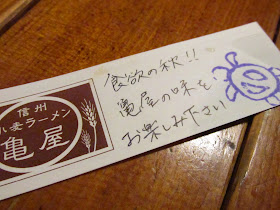 信州
小麦ラーメン
亀屋
食欲の秋!!
亀屋の味を
お楽しみ下さい